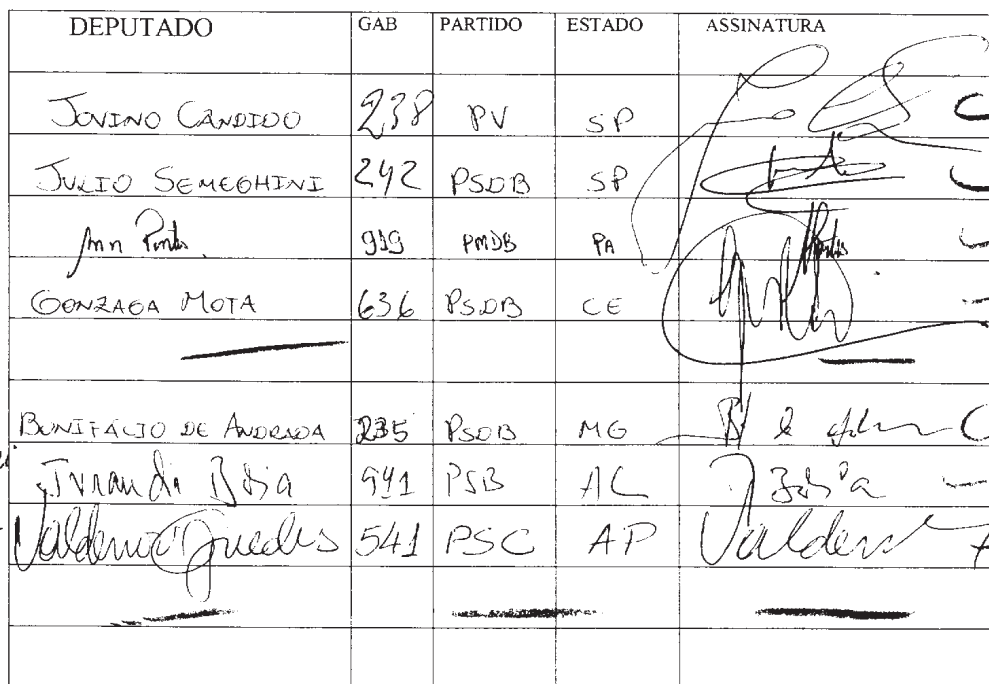 DEPUTADO GAB PARTIDO ESTADO ASSINATURA
JOVINO CANDIDO 238 PV SP
JULIO SEMEGHINI 242 PSDB SP
Ann Pontes 919 PMDB PA Pontes
GONZAGA MOTA 636 PSDB CE
BONIFÁCIO DE ANDRADA 235 PSDB MG
Jurandi Bóia 941 PSB AL Bóia
Valdenor Guedes 541 PSC AP Valdenor